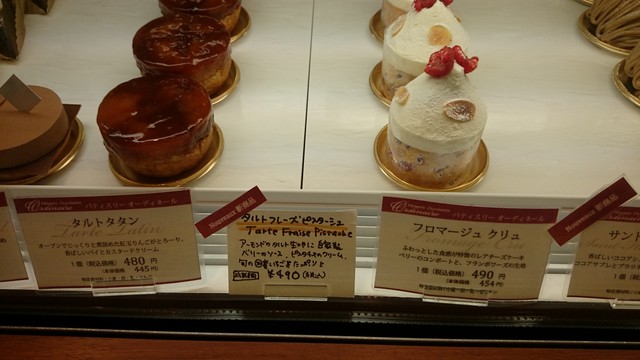 パティスリー オーディネール
タルトタタン
Tarte Tatin
オーブンでじっくりと煮詰めた紅玉りんごがとろーり。
香ばしいパイとカスタードクリーム。
1個(税込価格) 480 円
(本体価格) 445円
Nouveaux 新商品
タルトフレーズピスターシュ
Tarte Fraise Pistache
アーモンドのタルト生地に自家製
ベリーのソース、ピスタチオのクリーム、
旬の国産いちごをたっぷりと
¥490 (税込)
パティスリー オーディネール
フロマージュ クリュ
Fromage Cru
ふわっとした食感が特徴のレアチーズケーキ
ベリーのコンポートと、フランボワーズの生地
1個(税込価格) 490 円
(本体価格) 454円
Nouveaux 新商品
サント
香ばしいココア
ココアサブレとプラ